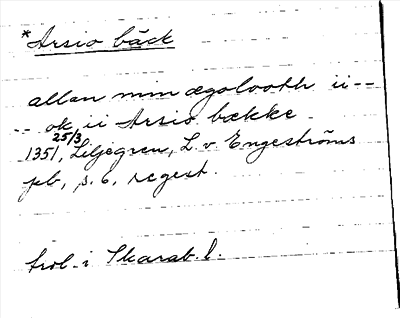 *Arsio bäck
allan min ægolooth ii --
-- ok ii Arsio bække
1351 25/3, Liljegren, L. v. Engeströms
pb, s. 6, regest.
trol. i Skarab. l.